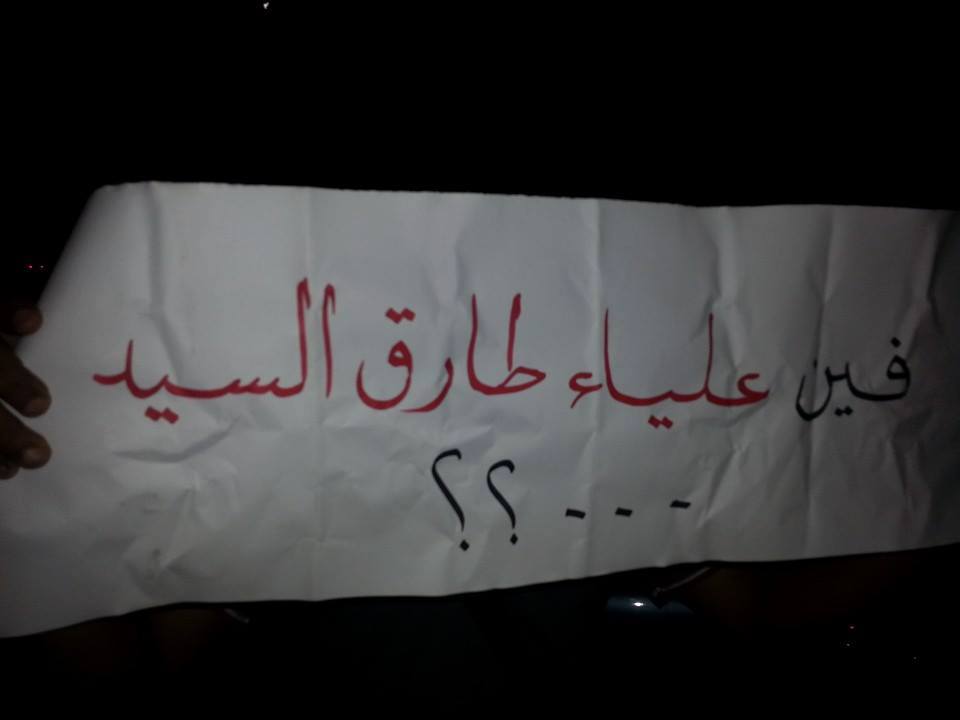 فين علياء طارق السيد
- - - ؟؟